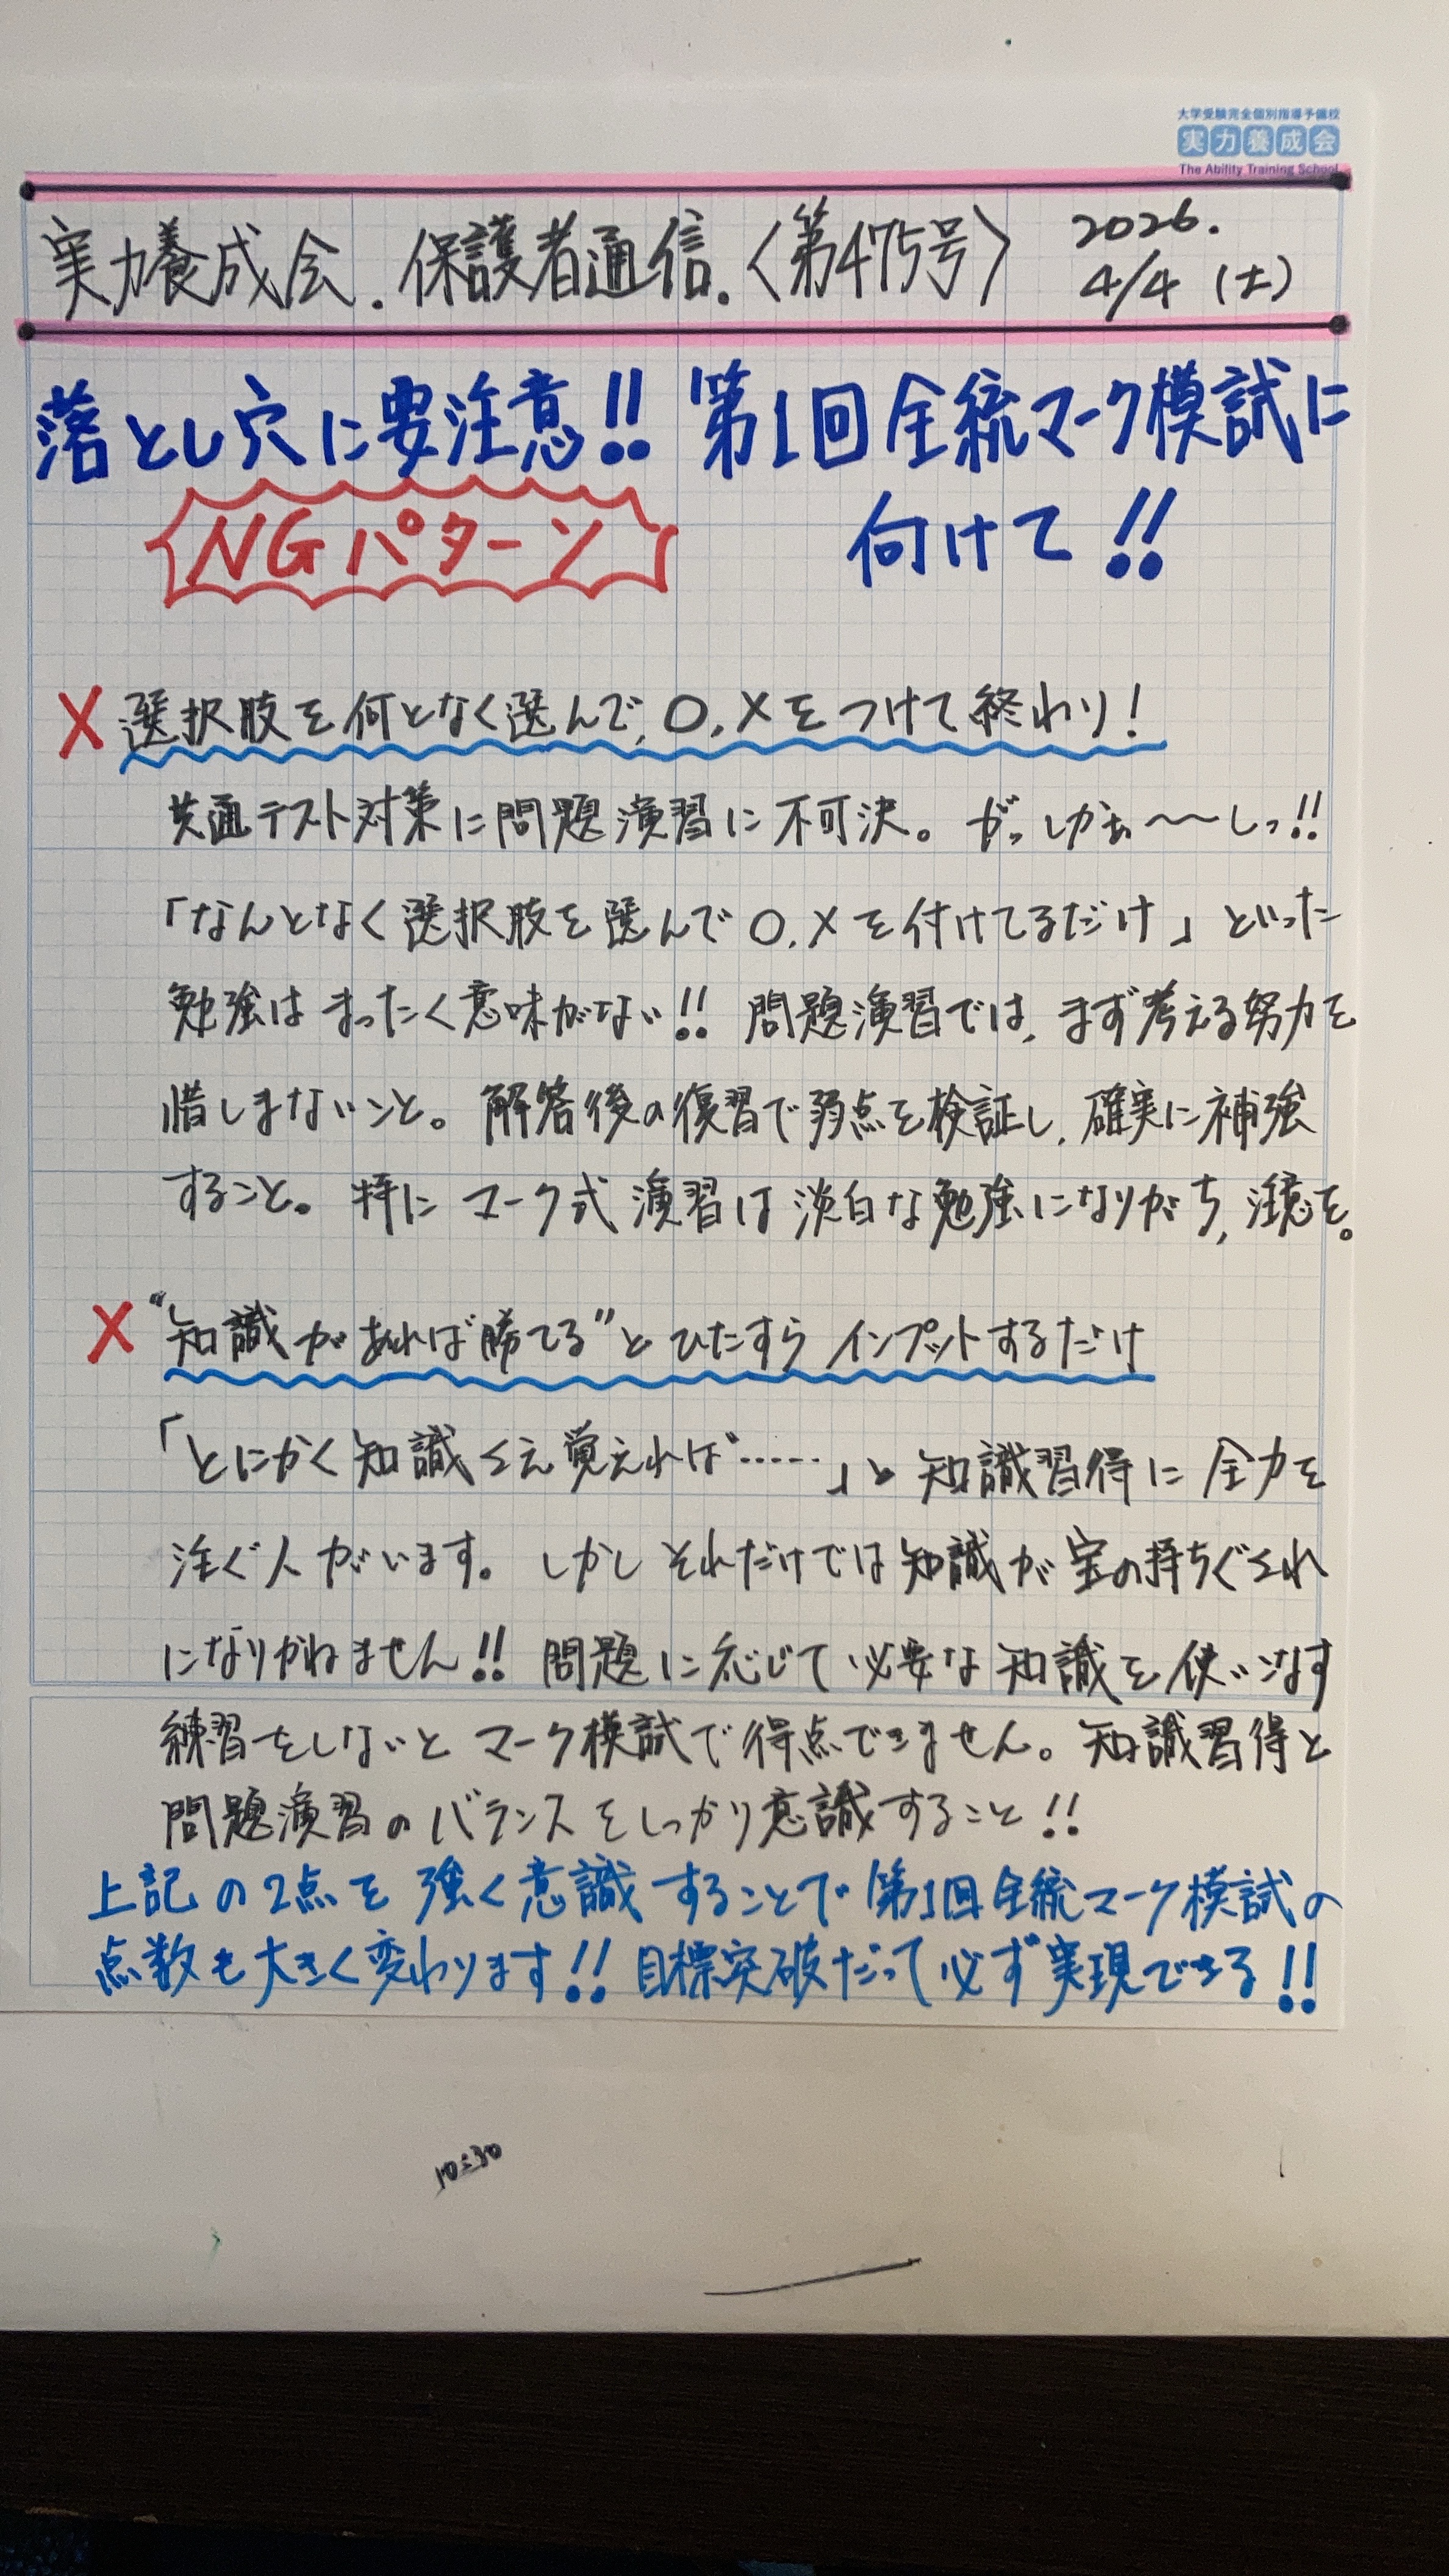 大学受験完全個別指導予備校
実力養成会
The Ability Training School
実力養成会.保護者通信.〈第475号〉 2026.
4/4(土)
落とし穴に要注意!! 第1回全統マーク模試に
NGパターン 向けて!!
X 選択肢を何となく選んで、○、×をつけて終わり!
共通テスト対策に問題演習に不可決。がっしかぁ〜〜しっ!!
「なんとなく選択肢を選んで○、×を付けてるだけ」といった
勉強はまったく意味がない!! 問題演習では、まず考える努力を
惜しまないこと。解答後の復習で弱点を検証し、確実に補強
すること。特にマーク式演習は淡白な勉強になりがち、注意を。
X “知識があれば勝てる”とひたすらインプットするだけ
「とにかく知識さえ覚えれば……」と知識習得に全力を
注ぐ人がいます。しかしそれだけでは知識が宝の持ちぐされ
になりかねません!! 問題に応じて必要な知識を使いこなす
練習をしないとマーク模試で得点できません。知識習得と
問題演習のバランスをしっかり意識すること!!
上記の2点を強く意識することで第1回全統マーク模試の
点数も大きく変わります!! 目標突破だって必ず実現できる!!
10:30